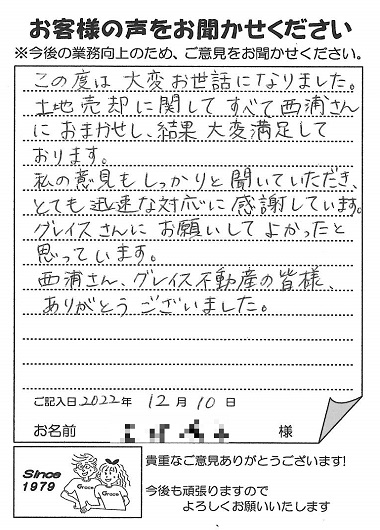 お客様の声をお聞かせください
※今後の業務向上のため、ご意見をお聞かせください。
この度は大変お世話になりました。
土地売却に関してすべて西浦さん
におまかせし、結果大変満足して
おります。
私の意見もしっかりと聞いていただき、
とても迅速な対応に感謝しています。
グレイスさんにお願いしてよかったと
思っています。
西浦さん、グレイス不動産の皆様、
ありがとうございました。
ご記入日2022年 12月10日
お名前 様
Since
1979
Grace Grace
貴重なご意見ありがとうございます!
今後も頑張りますので
よろしくお願いいたします